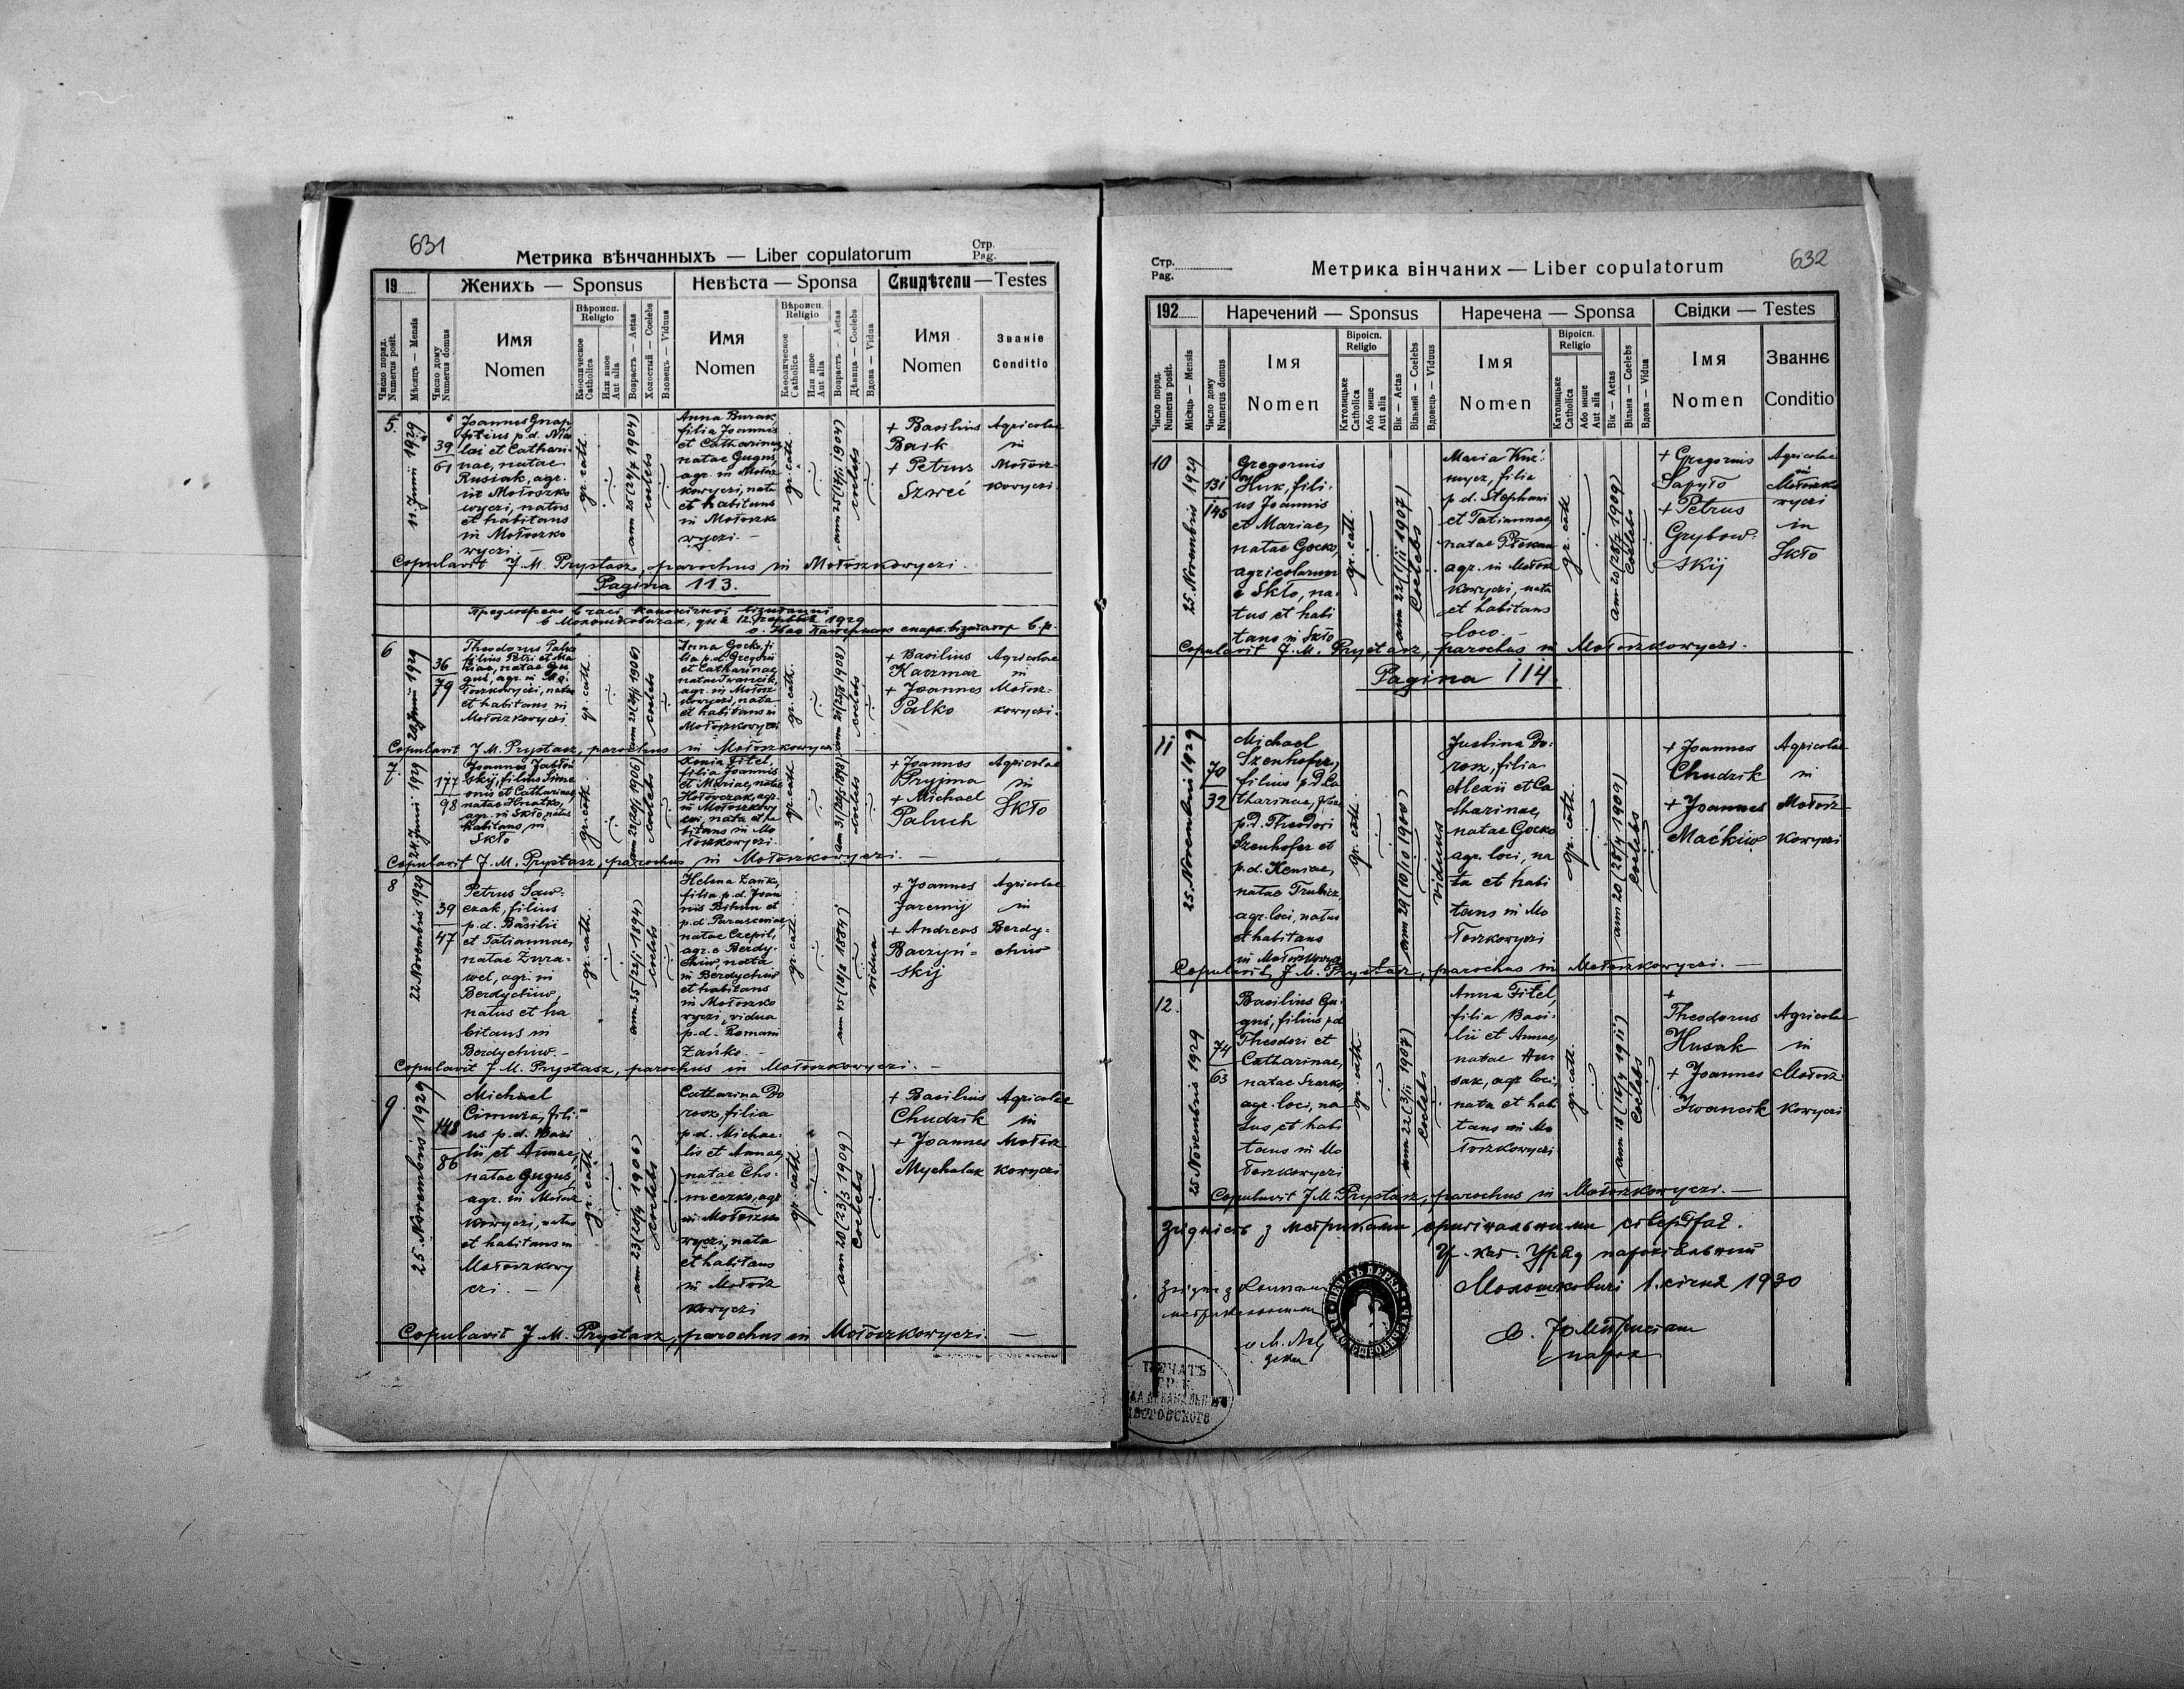 631
Метрика вѣнчанныхъ — Liber copulatorum
Стр.
Pag.
19
Женихъ — Sponsus
Невѣста — Sponsa
Свидѣтели — Testes
Число поряд.
Numerus posit.
Мѣсяць — Mensis
Число дому
Numerus domus
Имя
Nomen
Вѣроисп.
Religio
Каѳолическое
Catholica
Или иное
Aut alia
Возрастъ — Aetas
Холостый — Coelebs
Вдовецъ — Viduus
Имя
Nomen
Вѣроисп.
Religio
Каѳолическое
Catholica
Или иное
Aut alia
Возрастъ — Aetas
Дѣвица — Coelebs
Вдова — Vidua
Имя
Nomen
Званіе
Conditio
5.
11. Junii 1929
39
61
Joannes Gnap
filius p.d. Nico
lai et Cathari-
nae, natae
Rusiak, agr.
in Mołoszko
wyczi, natus
et habitans
in Mołoszko
wyczi. —
gr. cath.
ann 25 (24/7 1904)
coelebs
Anna Burak
filia Joannis
et Catharinae
natae Gugus,
agr. in Mołosz
kowyczi, nata
et habitans
in Mołoszko
wyczi. —
gr. cath.
coelebs
+ Basilius
Baik
+ Petrus
Szweć
Agricolae
in
Mołosz-
kowyczi.
Copulavit J. M. Prystasz, parochus in Mołoszkowyczi.
Pagina 113.
6
36
79
Theodorus Palko
filius Petri et Ma
riae, natae Gu
gus, agr. in Mo-
łoszkowyczi, natus
et habitans in
Mołoszkowyczi
gr. cath.
coelebs
Anna Gocko, fi
lia p.d. Gregorii
et Catharinae
natae Francik,
agr. in Mołosz
kowyczi, nata
et habitans in
Mołoszkowyczi
gr. cath.
coelebs
+ Basilius
Kaczmar
+ Joannes
Palko
Agricolae
in
Mołosz-
kowyczi.
Copulavit J. M. Prystasz, parochus in Mołoszkowyczi
7.
24. Junii 1929
177
98
Joannes Jabłoń
skij, filius Sime
onis et Catharinae
natae Hnatko,
agr. in Skło, natus
habitans in
Skło
gr. cath.
coelebs
Xenia Fitel,
filia Joannis
et Mariae, natae
Hołowczak, agr.
in Mołoszkowy
czi, nata et ha
bitans in Mo
łoszkowyczi.
gr. cath.
coelebs
+ Joannes
Pryjma
+ Michael
Paluch
Agricolae
in
Skło
Copulavit J. M. Prystasz, parochus in Mołoszkowyczi. —
8
22. Novembris 1929
39
47
Petrus Saw-
czak, filius
p.d. Basilii
et Tatiannae,
natae Żura-
wel, agr. in
Berdychiw,
natus et ha
bitans in
Berdychiw. —
gr. cath.
ann 35 (22/1 1894)
coelebs
Helena Zańko,
filia p.d. Joan
nis Bihun et
p.d. Parasceviae,
natae Czepil,
agr. e Berdy-
chiw, nata
in Berdychiw
et habitans
in Mołoszko
wyczi, vidua
p.d. Romani
Zańko. —
gr. cath.
ann 45 (18/2 1884)
vidua
+ Joannes
Jaremij
+ Andreas
Baczyń-
skij
Agricolae
in
Berdy-
chiw
Copulavit J. M. Prystasz, parochus in Mołoszkowyczi. —
9
25. Novembris 1929
148
86
Michael
Cimura, fili-
us p.d. Basi
lii et Annae,
natae Gugus,
agr. in Mołosz
kowyczi, natus
et habitans in
Mołoszkowy
czi. —
gr. cath.
ann 23 (20/4 1906)
coelebs
Catharina Do
rosz, filia
p.d. Michae-
lis et Annae,
natae Cho-
meczko, agr
in Mołoszko
wyczi, nata
et habitans
in Mołosz
kowyczi
gr. cath.
ann 20 (23/3 1909)
coelebs
+ Basilius
Chudzik
+ Joannes
Mychalak
Agricolae
in
Mołosz
kowyczi
Copulavit J. M. Prystasz, parochus in Mołoszkowyczi. —
632
Стр.
Pag.
Метрика вінчаних — Liber copulatorum
192
Наречений — Sponsus
Наречена — Sponsa
Свідки — Testes
Число поряд.
Numerus posit.
Місяць — Mensis
Число дому
Numerus domus
Імя
Nomen
Віроісп.
Religio
Католицьке
Catholica
Або инше
Aut alia
Вік — Aetas
Вільний — Coelebs
Вдовець — Viduus
Імя
Nomen
Віроісп.
Religio
Католицьке
Catholica
Або инше
Aut alia
Вік — Aetas
Вільна — Coelebs
Вдова — Vidua
Імя
Nomen
Званнє
Conditio
10
25. Novembris 1929
131
145
Gregorius
Huk, fili-
us Joannis
et Mariae,
natae Gocko,
agricolarum
e Skło, na-
tus et habi
tans in Skło
gr. cath.
ann 22 (1/11 1907)
coelebs
Maria Kuź-
mycz, filia
p.d. Stephani
et Tatiannae,
natae
agr. in Mołosz
kowyczi, nata
et habitans
loco. —
gr. cath
coelebs
+ Gregorius
Sapyło
+ Petrus
Grybow-
skij
Agricolae
in
Mołoszko
wyczi
in
Skło
Copulavit J. M. Prystasz, parochus in Mołoszkowyczi.
Pagina 114
11
25. Novembris 1929
70
32
Michael
Szenhofer,
filius p.d. Ca
tharinae,
p.d. Theodori
Szenhofer et
p.d. Xeniae,
natae Trubicz,
agr. loci, natus
et habitans
in Mołoszkowyczi
gr. cath.
ann 29 (10/10 1900)
viduus
Justina Do-
rosz, filia
Alexii et Ca
tharinae,
natae Gocko
agr. loci, na
ta et habi
tans in Mo
łoszkowyczi
gr. cath.
ann 20 (28/4 1909)
coelebs
+ Joannes
Chudzik
+ Joannes
Maćkiw
Agricolae
in
Mołosz-
kowyczi
Copulavit, J. M. Prystasz, parochus in Mołoszkowyczi. —
12.
25. Novembris 1929
74
63
Basilius Gu-
gus, filius p.d
Theodori et
Catharinae,
natae Szarko,
agr. loci, na
tus et habi
tans in Mo
łoszkowyczi
gr. cath.
ann 22 (3/11 1907)
coelebs
Anna Fitel,
filia Basi-
lii et Annae,
natae Hu-
sak, agr. loci,
nata et habi
tans in Mo
łoszkowyczi
gr. cath.
coelebs
+
Theodorus
Husak
+ Joannes
Iwancik
Agricolae
in
Mołosz-
kowyczi
Copulavit J. M. Prystasz, parochus in Mołoszkowyczi. —
Згідність з метриками оригінальними стверджає.
Гр.-кат. Уряд парохіяльний
Молошковичі 1. січня 1930
парох
ПЕЧАТЬ